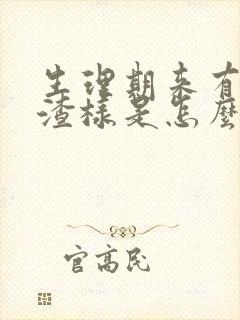 生理期来有
渣样是怎麼
官高民